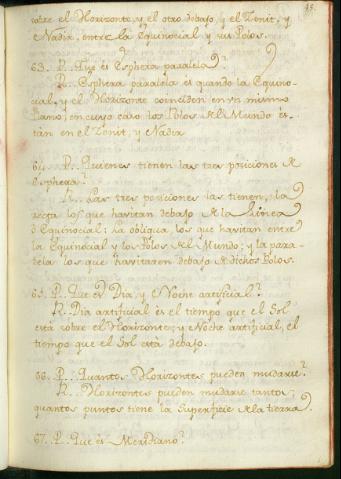 sobre el Horizonte, y el otro debajo, y el Zenit, y
Nadir, entre la Equinocial y sus Polos.
63. P. Que es Esphera paralela?
R. Esphera paralela es quando la Equino-
cial, y el Horizonte coinciden en vn mismo
Plano; en cuyo caso los Polos del Mundo es-
tàn en el Zenit, y Nadir
64. P. Quienes tienen las tres posiciones de
Esphera?
R. Las tres posiciones las tienen, la
recta los que havitan debajo de la Linea,
ò Equinocial: la obliqua los que havitan entre
la Equinocial y los Polos del Mundo; y la para-
lela los que havitaren debajo de dichos Polos.
65. P. Que es Dia, y Noche artificial?
R. Dia artificial es el tiempo que el Sol
està sobre el Horizonte; y Noche artificial, el
tiempo que el Sol està debajo.
66. P. Quantos Horizontes pueden mudarse?
R. Horizontes pueden mudarse tantos,
quantos puntos tiene la Superficie de la tierra.
67. P. Que es Meridiano?